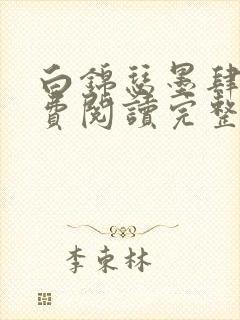 白錦瑟墨肆
費閱讀完整
李東林